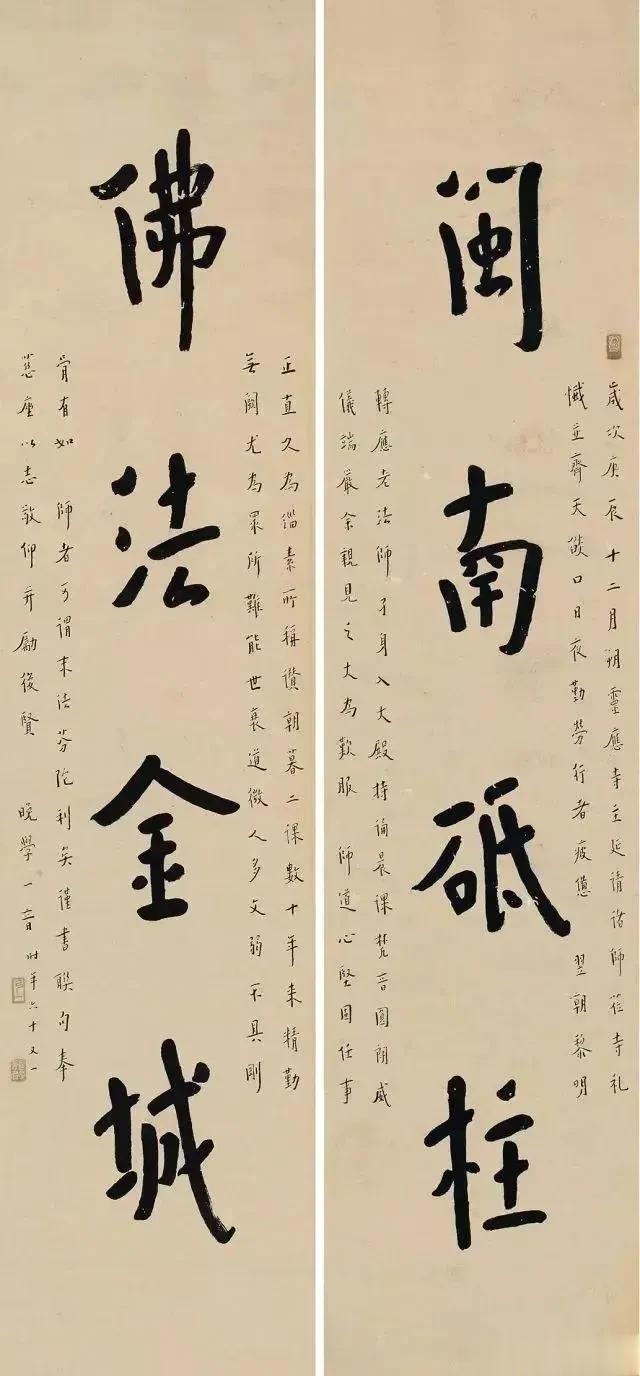 歲次庚辰十二月朔靈應寺主延請諸師蒞寺礼
懺並齋天燄口日夜勤勞行者疲憊 翌朝黎明
閩南砥柱
轉應老法師孑身入大殿持誦晨課梵音圓朗威
儀端嚴余親見之大為歎服 師道心堅固任事
正直久為緇素所稱讚朝暮二課數十年来精勤
無闕尤為眾所難能世衰道微人多文弱不具剛
佛法金城
骨有如 師者可謂末法芬陀利矣謹書聯句奉
慈座以志敬仰并勵後賢 晚學一音時年六十又一